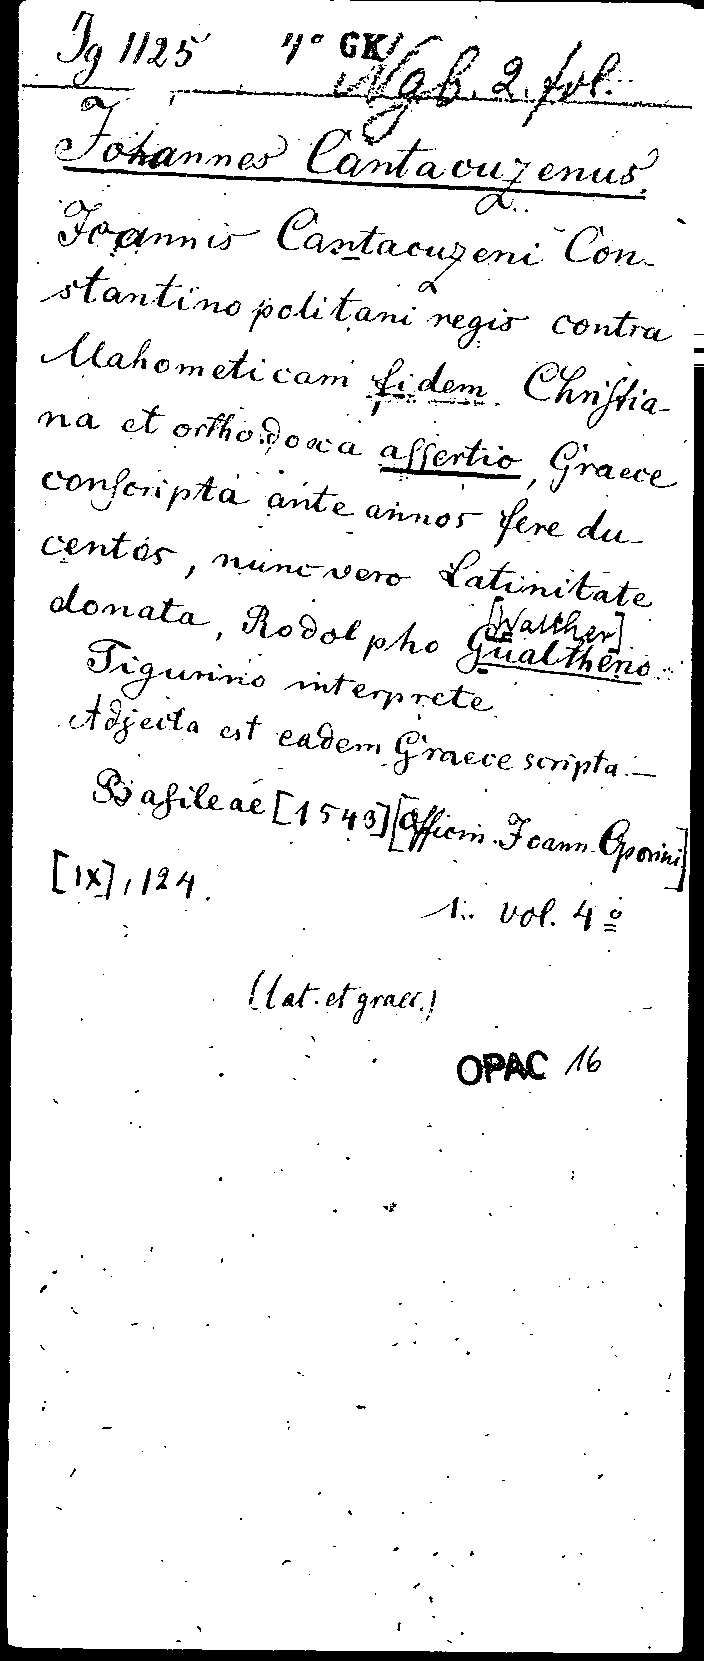 Ig 1125 4° GK Ngb. 2. fol.
Johannes Cantacuzenus.
Joannis Cantacuzeni Con-
stantinopolitani regis contra
Mahometicam fidem Christia-
na et orthodoxa assertio, Graece
conscripta ante annos fere du-
centos, nunc vero Latinitate
donata, Rodolpho Gualthero
[Walther]
Tigurino interprete
Adjecta est eadem Graece scripta.—
Basileae [1543] [Officin. Joann. Oporini]
[IX], 124.
1. vol. 4°
(lat. et graec.)
OPAC 16